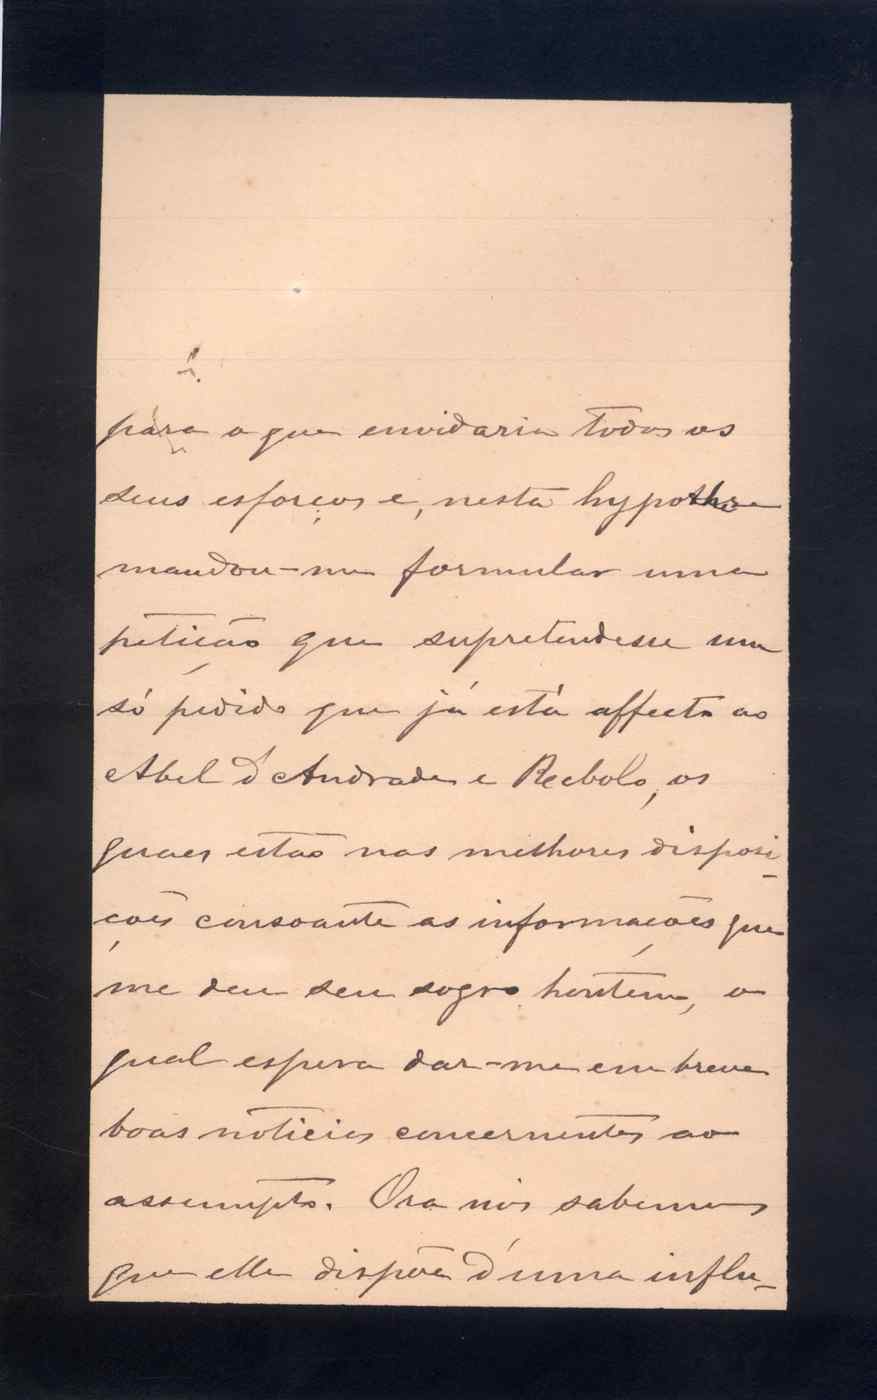 para o que envidaria todos os
seus esforços e, nesta hypothse
mandou-me formular uma
petição que supretendesse um
só pedido que já está affecto ao
Abel d'Andrade e Recbolo, os
quaes estão nas melhores disposi-
ções consoante as informações que
me deu seu sogro hontem, o
qual espera dar-me em breve
boas noticias concernentes ao
assumpto. Ora nós sabemos
que elle dispõe d'uma influ-